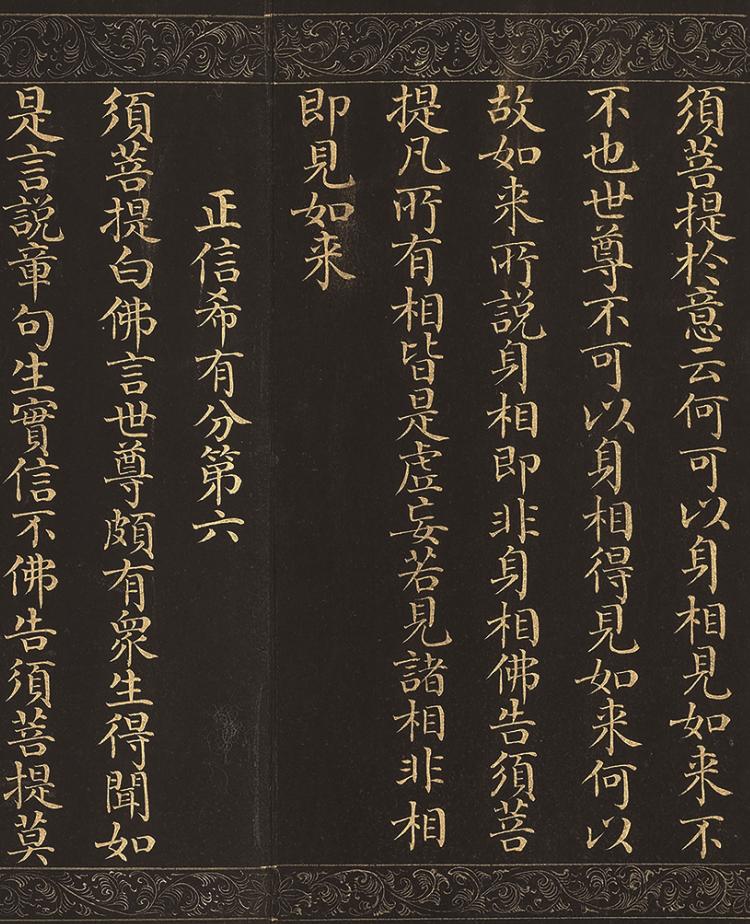 須菩提於意云何可以身相見如来不
不也世尊不可以身相得見如来何以
故如来所説身相即非身相佛告須菩
提凡所有相皆是虛妄若見諸相非相
即見如来
正信希有分第六
須菩提白佛言世尊頗有衆生得聞如
是言説章句生實信不佛告須菩提莫